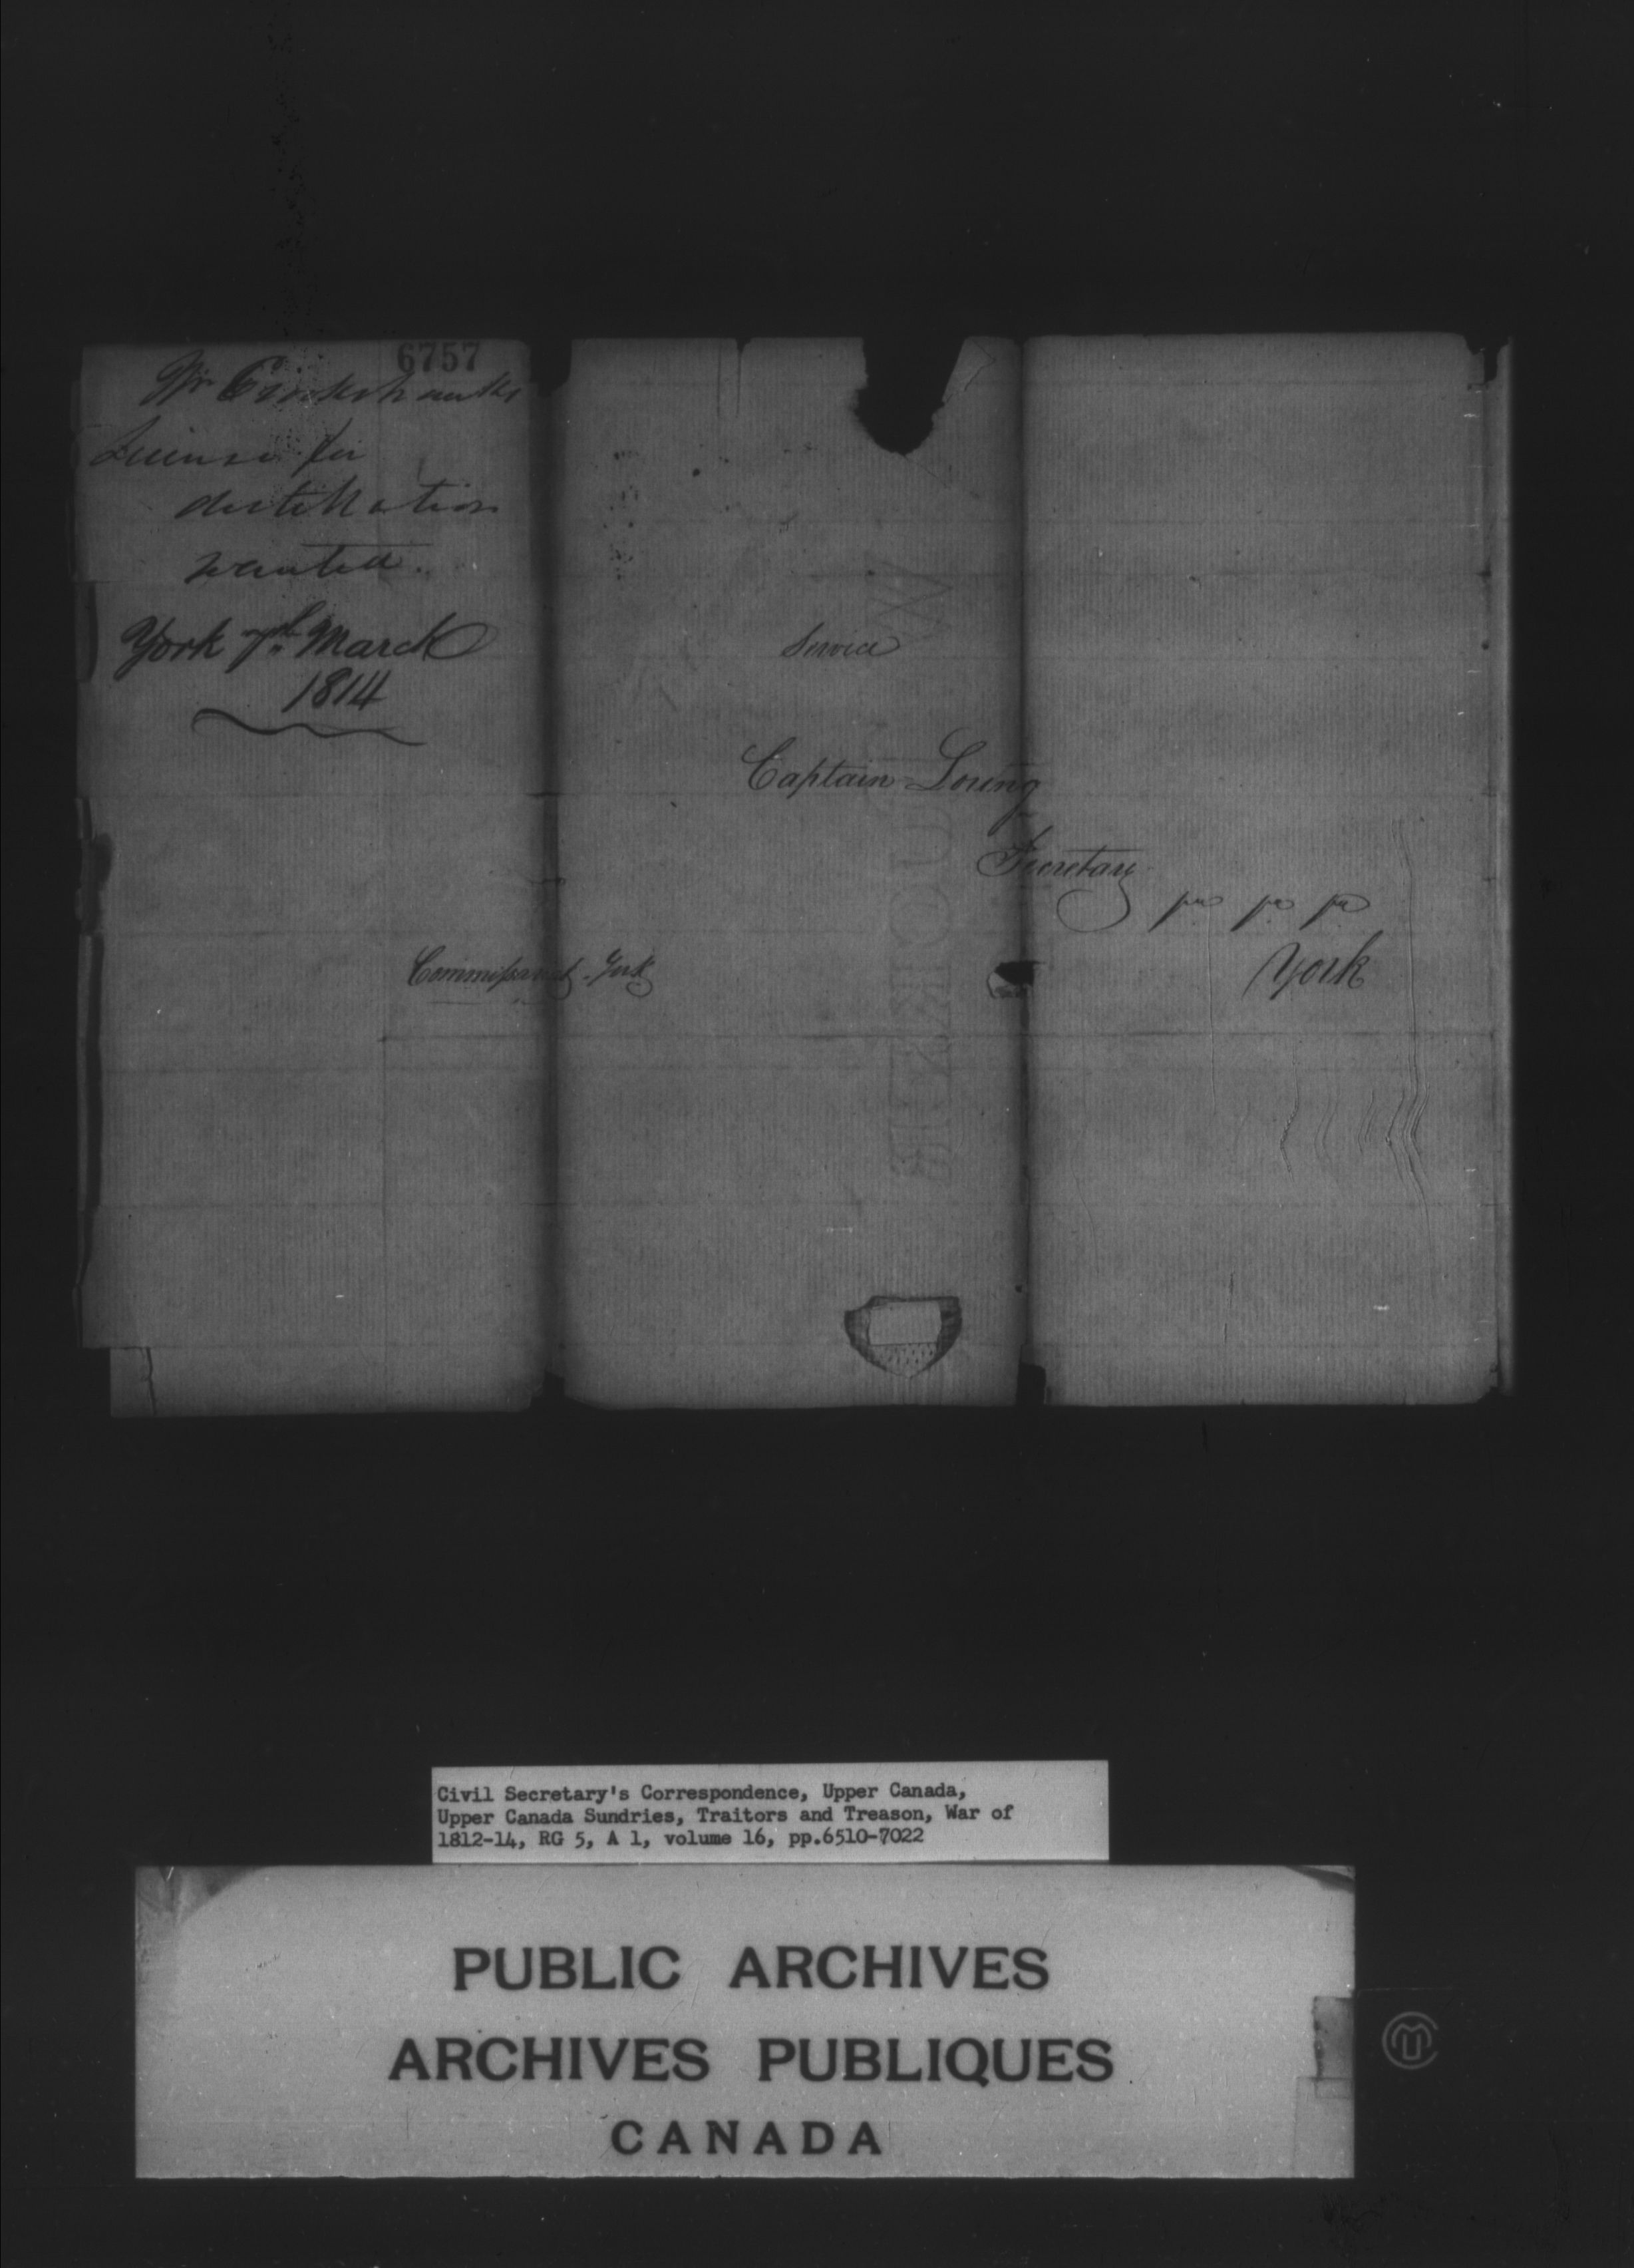 6757
Mr Crookshanks
License for
distillation
wanted.
York 7th March
1814
Service
Captain Loring
Secretary
York
Commissariat. York
Civil Secretary's Correspondence, Upper Canada,
Upper Canada Sundries, Traitors and Treason, War of
1812-14, RG 5, A 1, volume 16, pp.6510-7022
PUBLIC ARCHIVES
ARCHIVES PUBLIQUES
CANADA